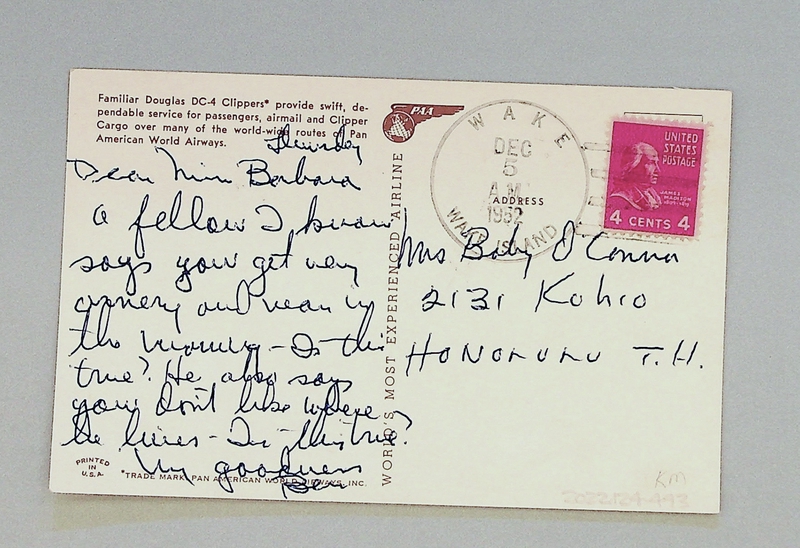 Familiar Douglas DC-4 Clippers* provide swift, de-
pendable service for passengers, airmail and Clipper
Cargo over many of the world-wide routes of Pan
American World Airways.
Thursday
Dear Miss Barbara
A fellow I know
says you get very
ornery and mean in
the morning - Is this
true? He also says
you don't like where
he lives - Is this true?
My goodness
Ben
PRINTED
IN
U.S.A.
*TRADE MARK, PAN AMERICAN WORLD AIRWAYS, INC.
WORLD'S MOST EXPERIENCED AIRLINE
PAA
WAKE
DEC
5
A.M.
1952
WAKE ISLAND
ADDRESS
UNITED
STATES
POSTAGE
JAMES
MADISON
4 CENTS 4
O'Connor
2131 Kohio
HONOLULU T.H.
KM